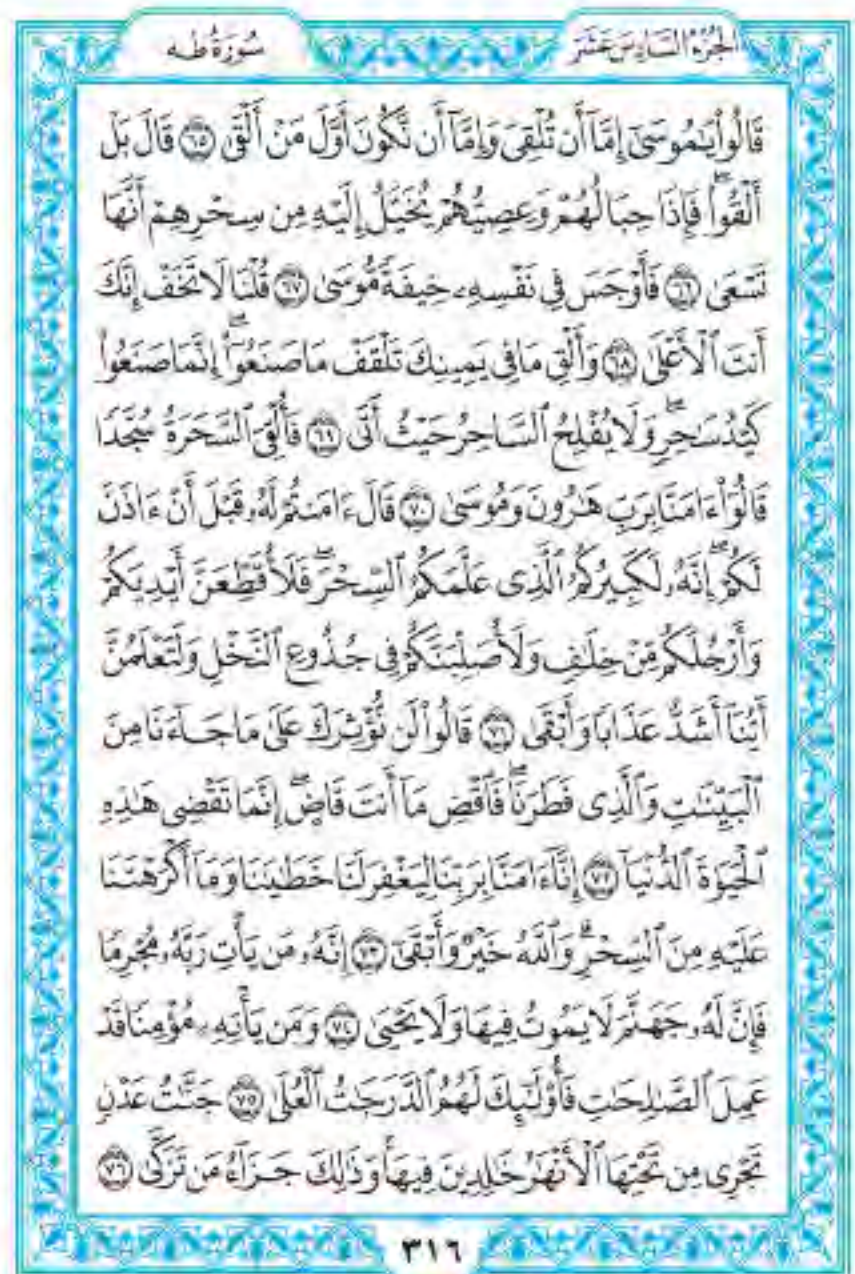 الجزء السادس عشر
سورة طه
قَالُوا۟ يَٰمُوسَىٰٓ إِمَّآ أَن تُلْقِىَ وَإِمَّآ أَن نَّكُونَ أَوَّلَ مَنْ أَلْقَىٰ ٦٥ قَالَ بَلْ
أَلْقُوا۟ ۖ فَإِذَا حِبَالُهُمْ وَعِصِيُّهُمْ يُخَيَّلُ إِلَيْهِ مِن سِحْرِهِمْ أَنَّهَا
تَسْعَىٰ ٦٦ فَأَوْجَسَ فِى نَفْسِهِۦ خِيفَةً مُّوسَىٰ ٦٧ قُلْنَا لَا تَخَفْ إِنَّكَ
أَنتَ ٱلْأَعْلَىٰ ٦٨ وَأَلْقِ مَا فِى يَمِينِكَ تَلْقَفْ مَا صَنَعُوٓا۟ ۖ إِنَّمَا صَنَعُوا۟
كَيْدُ سَٰحِرٍ ۖ وَلَا يُفْلِحُ ٱلسَّاحِرُ حَيْثُ أَتَىٰ ٦٩ فَأُلْقِىَ ٱلسَّحَرَةُ سُجَّدًا
قَالُوٓا۟ ءَامَنَّا بِرَبِّ هَٰرُونَ وَمُوسَىٰ ٧٠ قَالَ ءَامَنتُمْ لَهُۥ قَبْلَ أَنْ ءَاذَنَ
لَكُمْ ۖ إِنَّهُۥ لَكَبِيرُكُمُ ٱلَّذِى عَلَّمَكُمُ ٱلسِّحْرَ ۖ فَلَأُقَطِّعَنَّ أَيْدِيَكُمْ
وَأَرْجُلَكُم مِّنْ خِلَٰفٍ وَلَأُصَلِّبَنَّكُمْ فِى جُذُوعِ ٱلنَّخْلِ وَلَتَعْلَمُنَّ
أَيُّنَآ أَشَدُّ عَذَابًا وَأَبْقَىٰ ٧١ قَالُوا۟ لَن نُّؤْثِرَكَ عَلَىٰ مَا جَآءَنَا مِنَ
ٱلْبَيِّنَٰتِ وَٱلَّذِى فَطَرَنَا ۖ فَٱقْضِ مَآ أَنتَ قَاضٍ ۖ إِنَّمَا تَقْضِى هَٰذِهِ
ٱلْحَيَوٰةَ ٱلدُّنْيَآ ٧٢ إِنَّآ ءَامَنَّا بِرَبِّنَا لِيَغْفِرَ لَنَا خَطَٰيَٰنَا وَمَآ أَكْرَهْتَنَا
عَلَيْهِ مِنَ ٱلسِّحْرِ ۗ وَٱللَّهُ خَيْرٌ وَأَبْقَىٰٓ ٧٣ إِنَّهُۥ مَن يَأْتِ رَبَّهُۥ مُجْرِمًا
فَإِنَّ لَهُۥ جَهَنَّمَ لَا يَمُوتُ فِيهَا وَلَا يَحْيَىٰ ٧٤ وَمَن يَأْتِهِۦ مُؤْمِنًا قَدْ
عَمِلَ ٱلصَّٰلِحَٰتِ فَأُو۟لَٰٓئِكَ لَهُمُ ٱلدَّرَجَٰتُ ٱلْعُلَىٰ ٧٥ جَنَّٰتُ عَدْنٍ
تَجْرِى مِن تَحْتِهَا ٱلْأَنْهَٰرُ خَٰلِدِينَ فِيهَا ۚ وَذَٰلِكَ جَزَآءُ مَن تَزَكَّىٰ ٧٦
٣١٦